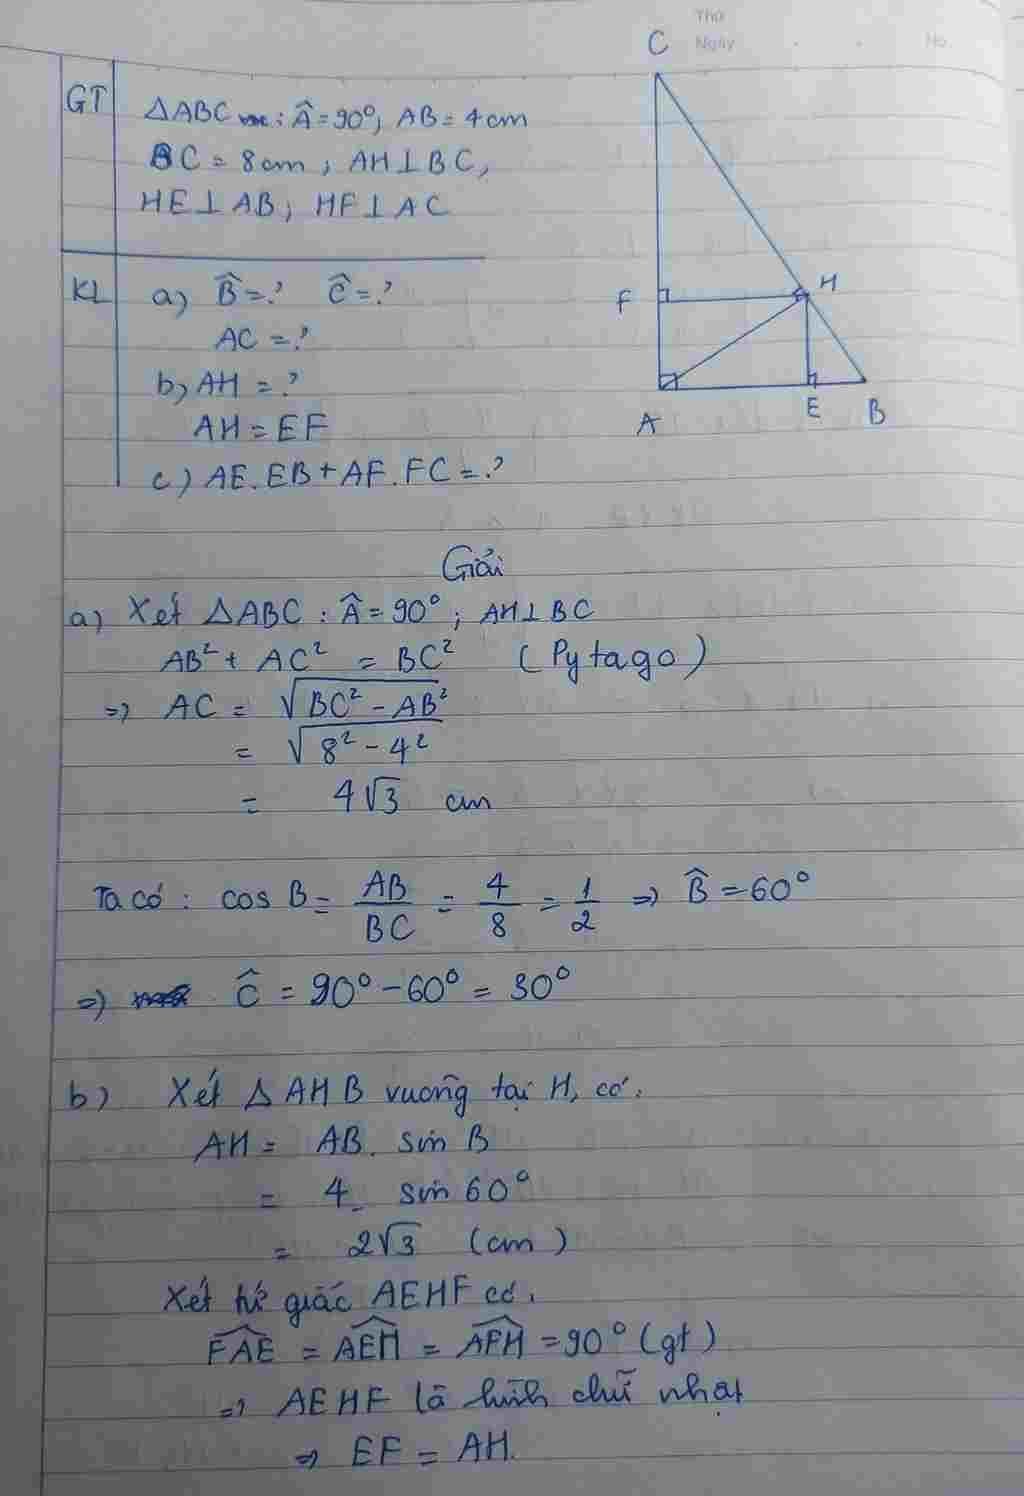 Thứ
Ngày No.
GT ΔABC : Â = 90°, AB = 4cm
BC = 8cm ; AH ⊥ BC,
HE ⊥ AB ; HF ⊥ AC
KL a) B̂ = ? Ĉ = ?
AC = ?
b) AH = ?
AH = EF
c) AE.EB + AF.FC = ?
C
F
H
A
E
B
Giải
a) Xét ΔABC : Â = 90° ; AH ⊥ BC
AB² + AC² = BC² (Pytago)
⇒ AC = √(BC² - AB²)
= √(8² - 4²)
= 4√3 cm
Ta có : cos B = AB/BC = 4/8 = 1/2 ⇒ B̂ = 60°
⇒ Ĉ = 90° - 60° = 30°
b) Xét Δ AHB vuông tại H, có:
AH = AB. sin B
= 4. sin 60°
= 2√3 (cm)
Xét tứ giác AEHF có.
FAE^ = AEH^ = AFH^ = 90° (gt)
⇒ AEHF là hình chữ nhật
⇒ EF = AH.